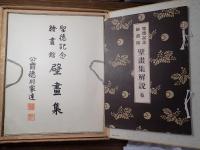 聖徳記念
繪畫館
壁畫集
公爵德川家達
聖徳記念
繪畫館
壁畫集解説